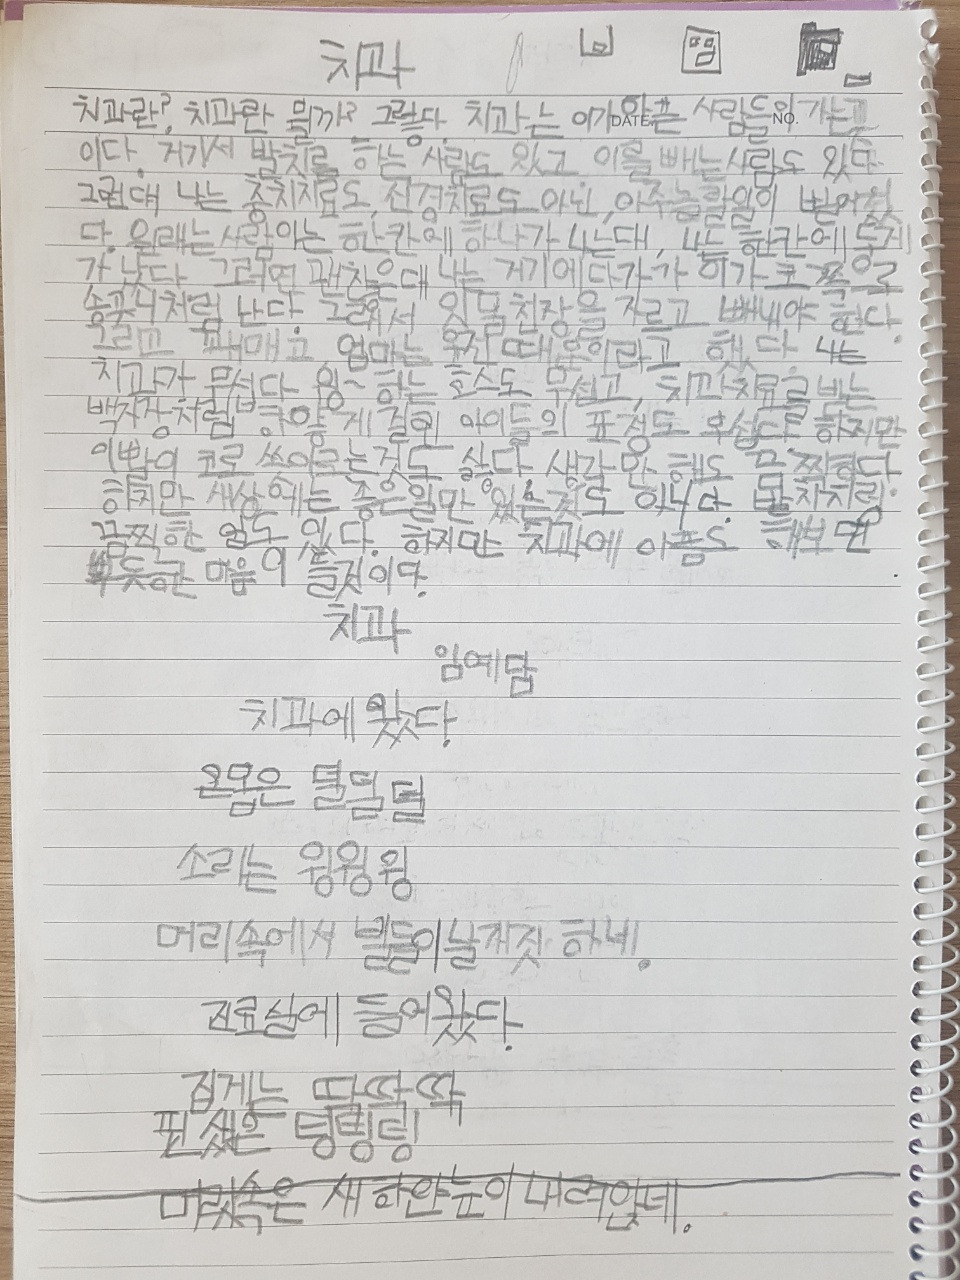 치과
치과란? 치과란 뭘까? 그렇다. 치과는 이가 아픈 사람들이 가는곳
DATE. NO.
이다. 거기서 발치를 하는 사람도 있고 이를 빼는사람도 있다.
그런대 나는 충치치료도, 신경치료도 아닌, 아주 일이 벌어졌
다. 원래는 사람이는 한칸에 하나가 나는대, 나는 한칸에 두게
가 났다. 그러면 괜찮은대 나는 거기에다가 이가 코 쪽으로
송곳니처럼 난다. 그래서 잇몸천장을 자르고 빼내야 한다.
그리고 꿰매고, 엄마는 이라고 했다. 나는
치과가 무섭다. 윙~ 하는 호스도 무섭고, 치과치료를 받는
백지장처럼 하얗게 질린 아이들의 표정도 무섭다. 하지만
이빨이 코로 쏘아르는것도 싫다. 생각만 해도 끔찍하다.
하지만 세상에는 좋은일만 있는것도 아니다. 발치처럼
끔찍한 일도 있다. 하지만 치과에 아픔도 해보면
뿌듯한 마음이 들것이다.
치과
임예담
치과에 왔다.
온몸은 덜덜덜
소리는 윙윙윙
머리속에서 벌들이날개짓 하네.
진료실에 들어왔다.
집게는 딱딱딱
핀셋은 팅팅팅
머릿속은 새하얀눈이 내려앉네.